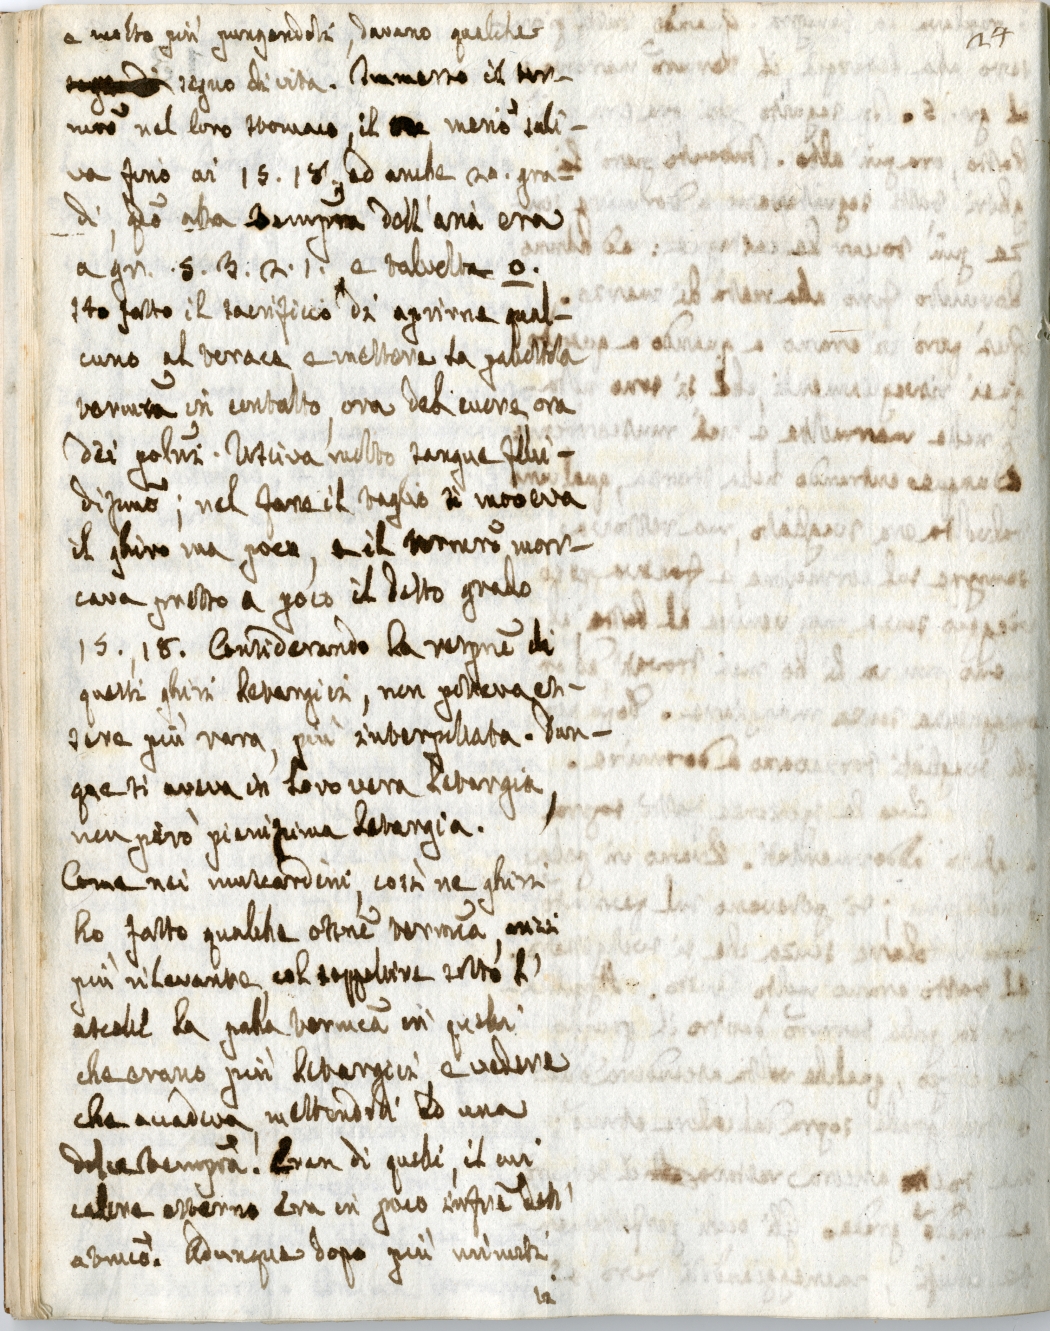 24
e molto più pungendoli, davano qualche
segno di vita. Immerso il ter-
mrõ nel loro stomaco, il merio sali-
va fino ai 15. 18. ed anche 20. gra-
di, qdo alla temprã dell'aria era
a gr. 5. 3. 2. 1., e talvolta 0.
Ho fatto il sacrificio di aprirne qual-
cuno al torace e mettere la pallottola
termcã in contatto, ora del cuore, ora
dei polmi. Usciva molto sangue flui-
dissimo; nel fare il taglio si moveva
il ghiro ma poco, e il termrõ mar-
cava presto a poco il detto grado
15., 18. Considerando la respnẽ di
questi ghiri letargici, non poteva es-
sere più rara, più interpellata. Dun-
que si aveva in loro vera letargia,
non però pienissima letargia.
Come nei muscardini, così ne ghiri
ho fatto qualche ossnẽ termicã, anzi
più rilevante, col seppellire sotto l'
ascelle la palla termicã in quelli
che erano più letargici, e vedere
che accadeva, mettendoli ad una
dolce temprã. Eran di quelli, il cui
calore esterno era in poco infrẽ dell'
atmicõ. Adunque dopo più minuti
12